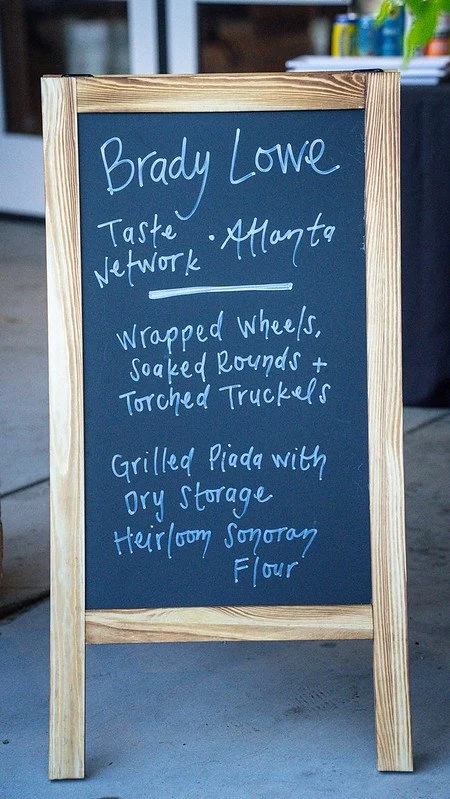 Brady Lowe
Taste Network · Atlanta
Wrapped Wheels,
Soaked Rounds +
Torched Truckels
Grilled Piada with
Dry Storage
Heirloom Sonoran
Flour